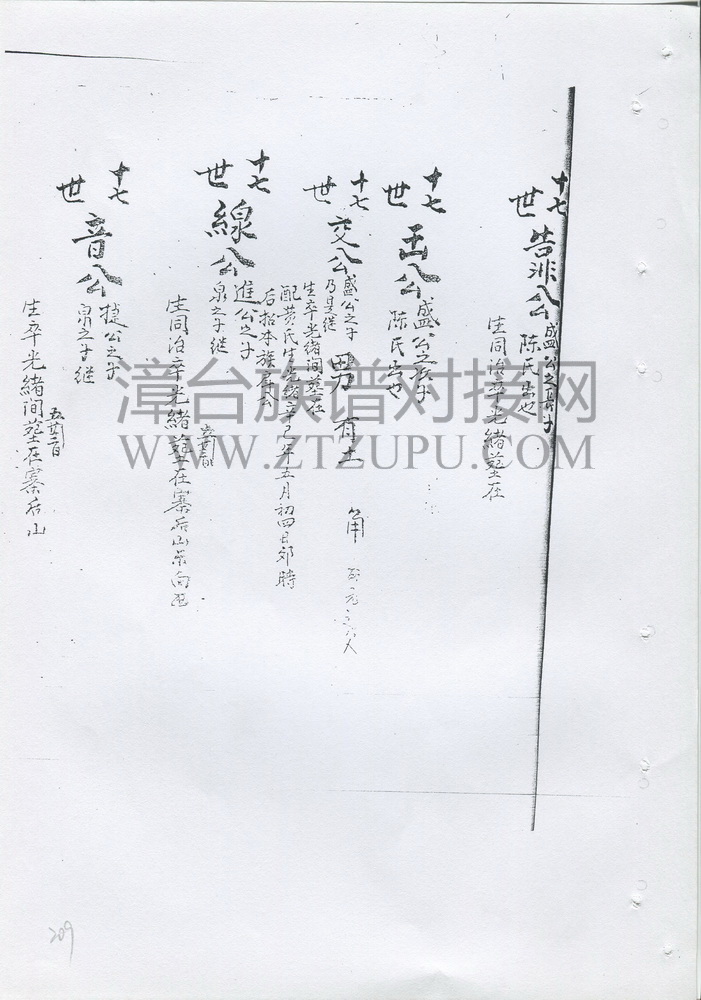 十七世
告非公 盛公之長子
陳氏出也
生同治卒光緒塟在
十七世
公 盛公之次子
陳氏出也
十七世
交公 盛公之子
乃是继
生卒光緒间塟在
配黄氏生光緒辛巳年五月初四日卯時
后招本族
男 有土
角
十七世
線公 進公之子
泉之子继
生同治卒光緒塟在寨后山
十七世
音公 捷公之子
泉之子继
生卒光緒间塟在寨后山
五廿三日
漳台族谱对接网
WWW.ZTZUPU.COM
209